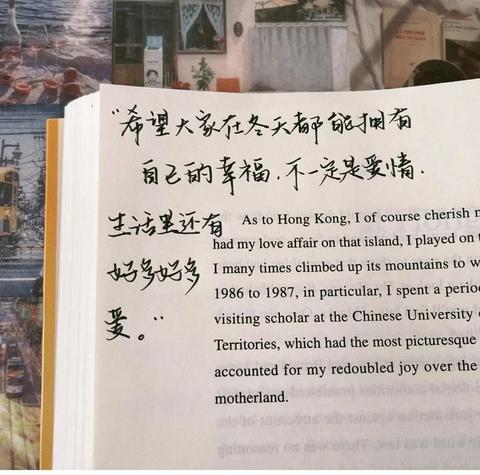 “希望大家在冬天都能拥有
自己的幸福,不一定是爱情.
生活里还有
好多好多
爱。”
As to Hong Kong, I of course cherish
had my love affair on that island, I played on
I many times climbed up its mountains to
1986 to 1987, in particular, I spent a
visiting scholar at the Chinese University
Territories, which had the most picturesque
accounted for my redoubled joy over the
motherland.